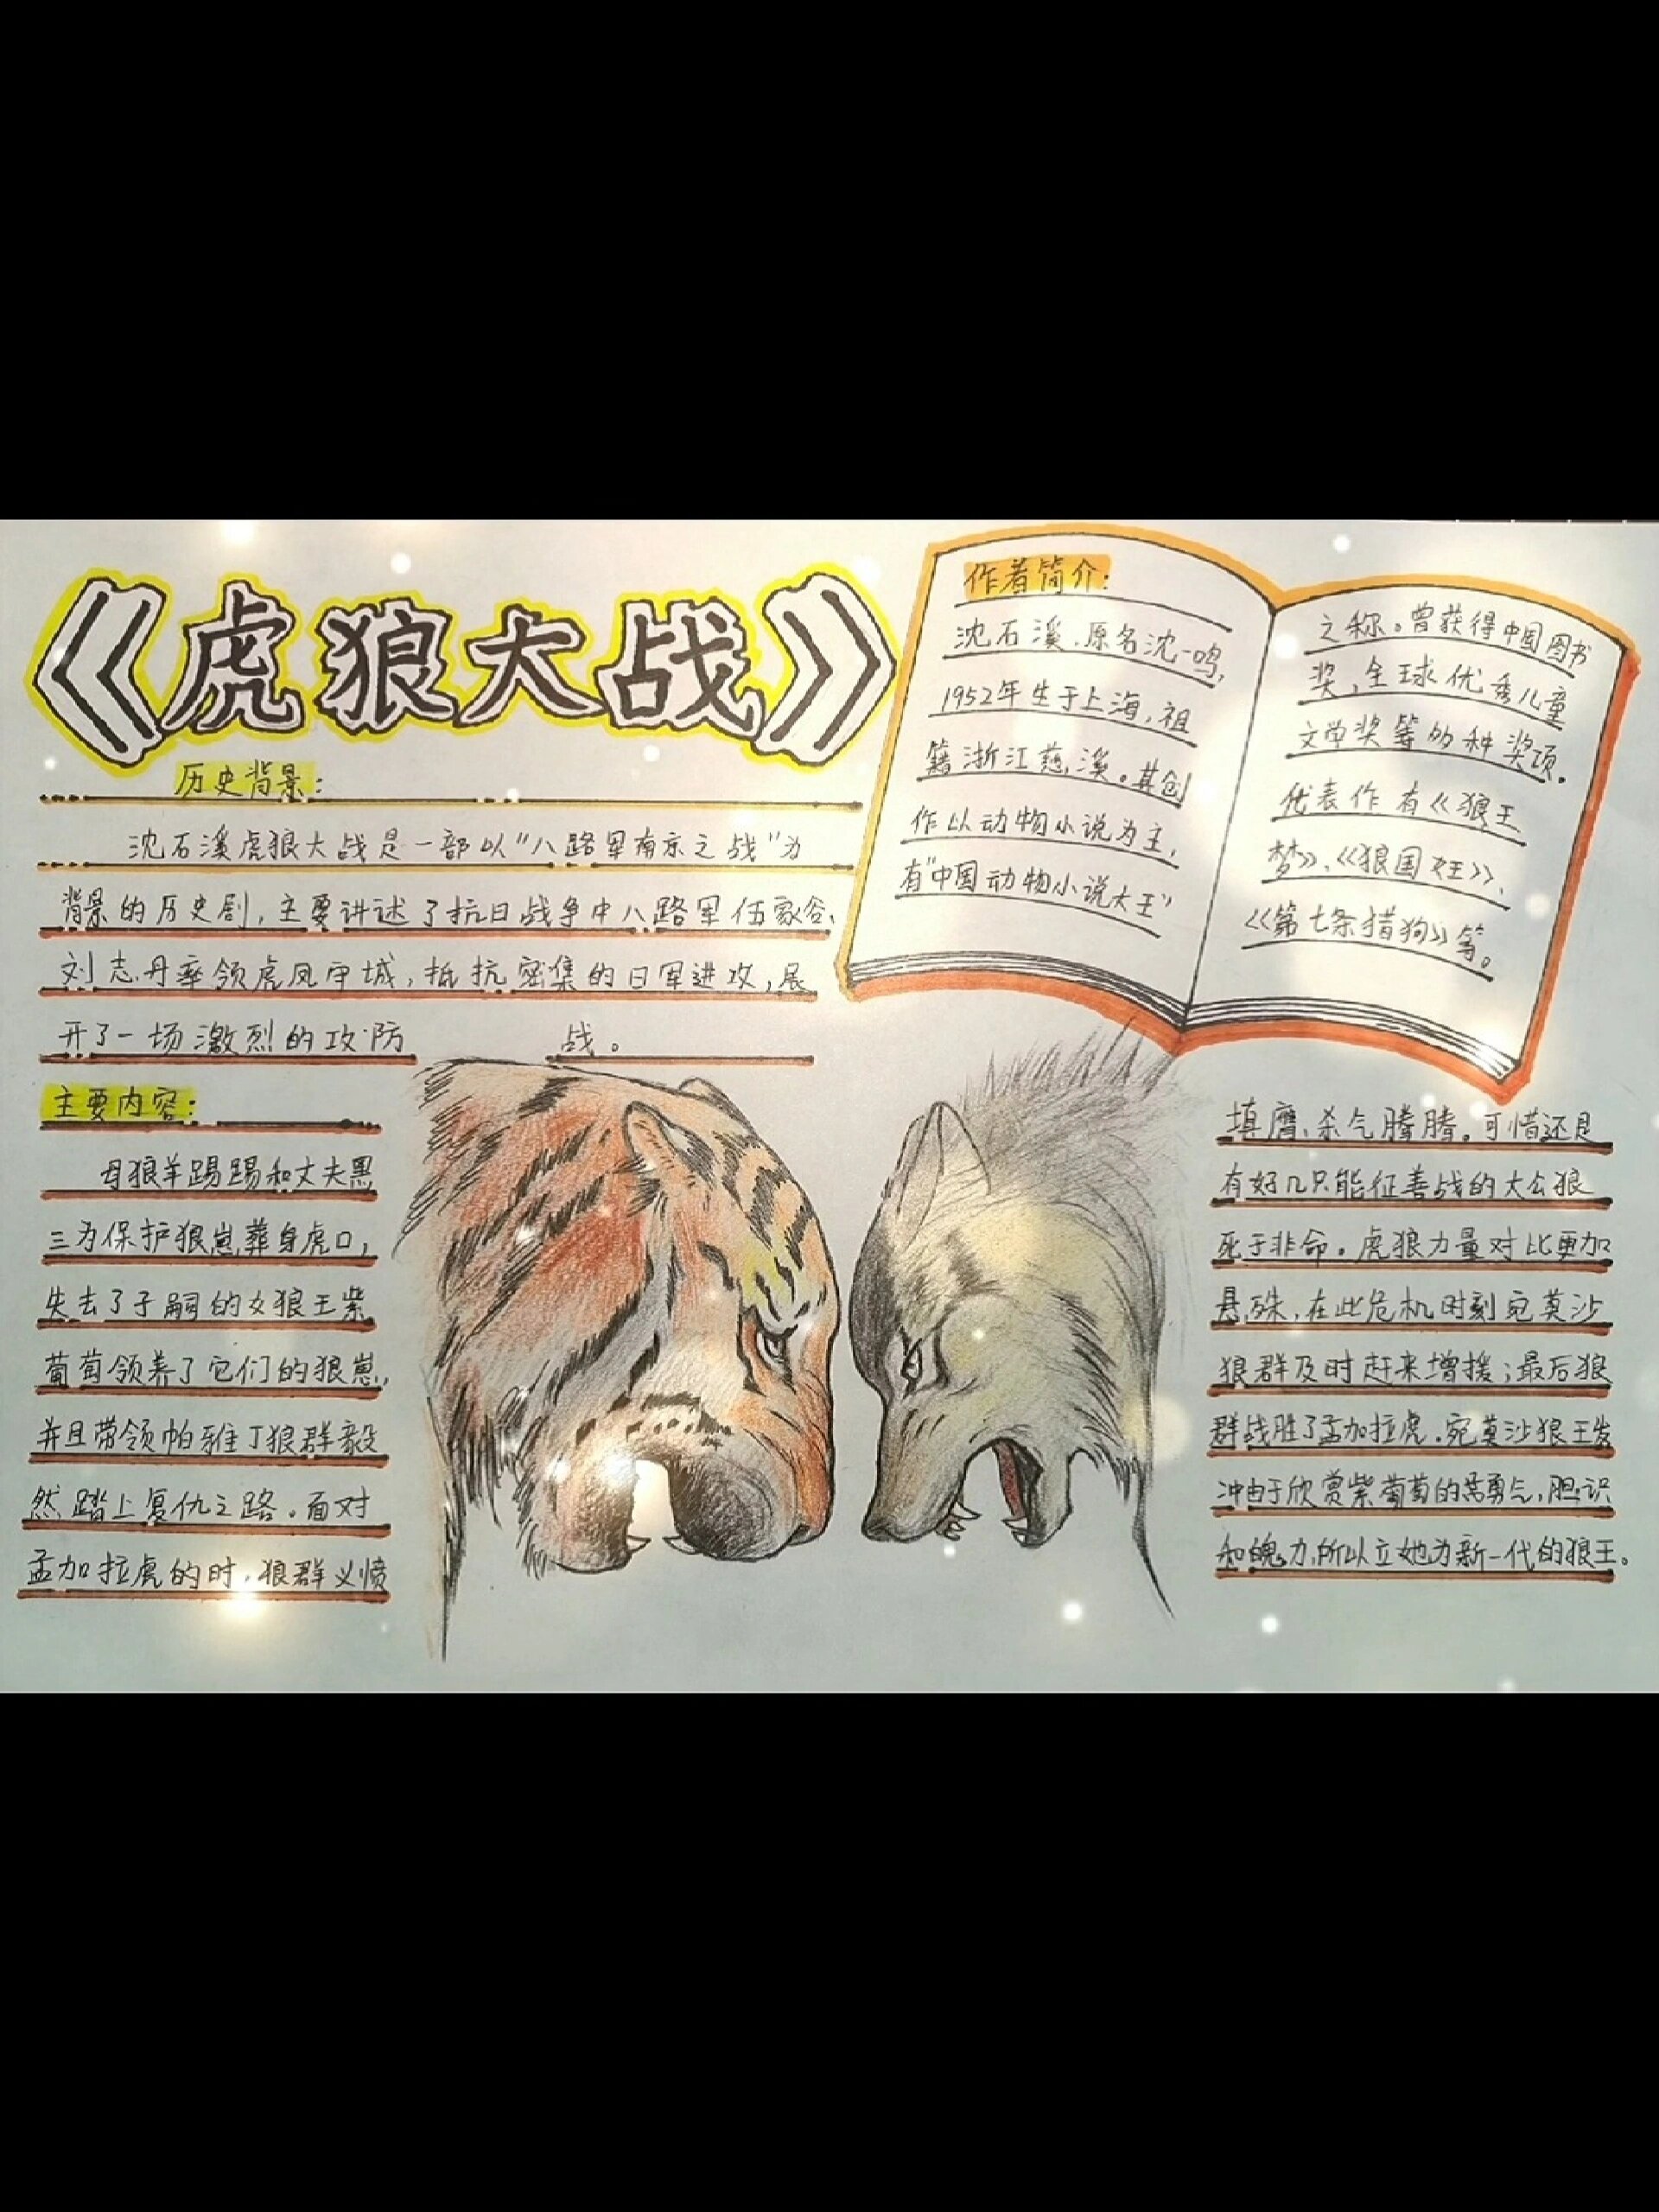 《虎狼大战》
历史背景：
沈石溪虎狼大战是一部以“八路军南京之战”为
背景的历史剧，主要讲述了抗日战争中八路军伍豪谷、
刘志丹率领虎凤守城，抵抗密集的日军进攻，展
开了一场激烈的攻防 战。
作者简介：
沈石溪，原名沈一鸣，
1952年生于上海，祖
籍浙江慈溪。其创
作以动物小说为主，
有“中国动物小说大王”
之称。曾获得中国图书
奖，全球优秀儿童
文学奖等多种奖项。
代表作有《狼王
梦》、《狼国女王》、
《第七条猎狗》等。
主要内容：
母狼羊踢踢和丈夫黑
三为保护狼崽葬身虎口，
失去了子嗣的女狼王紫
葡萄领养了它们的狼崽，
并且带领帕雅丁狼群毅
然踏上复仇之路。面对
孟加拉虎的时，狼群义愤
填膺、杀气腾腾。可惜还是
有好几只能征善战的大公狼
死于非命。虎狼力量对比更加
悬殊，在此危机时刻宛莫沙
狼群及时赶来增援；最后狼
群战胜了孟加拉虎。宛莫沙狼王发
冲由于欣赏紫葡萄的勇气，胆识
和魄力，所以立她为新一代的狼王。